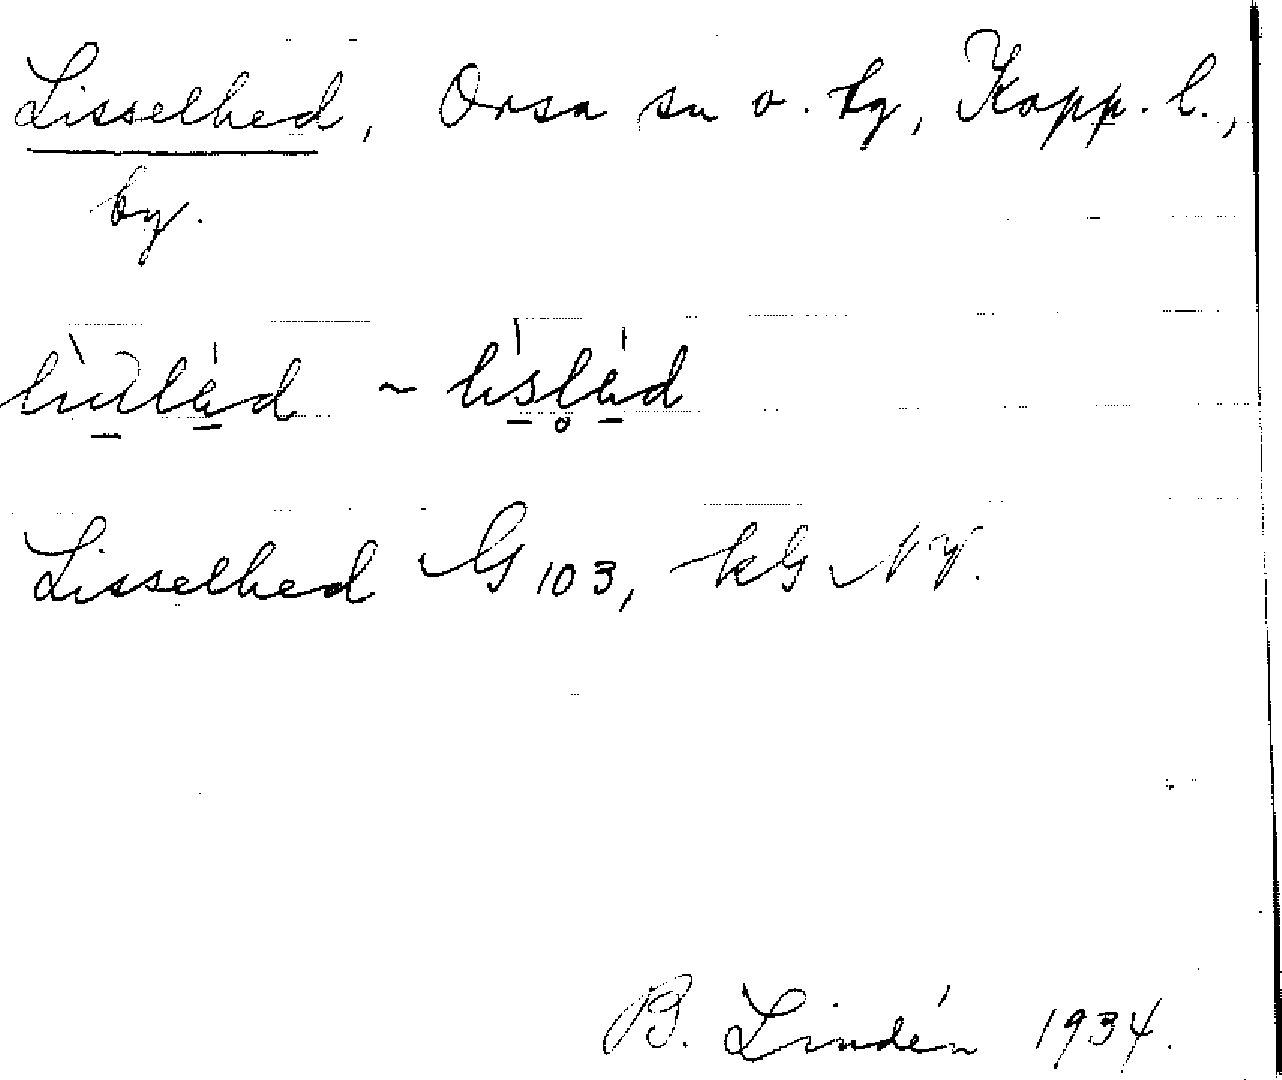 Lisselhed, Orsa sn o. tg, Kopp. l.,
by.
~ lìsläd
Lisselhed G 103, kG NV.
B. Lindén 1934.